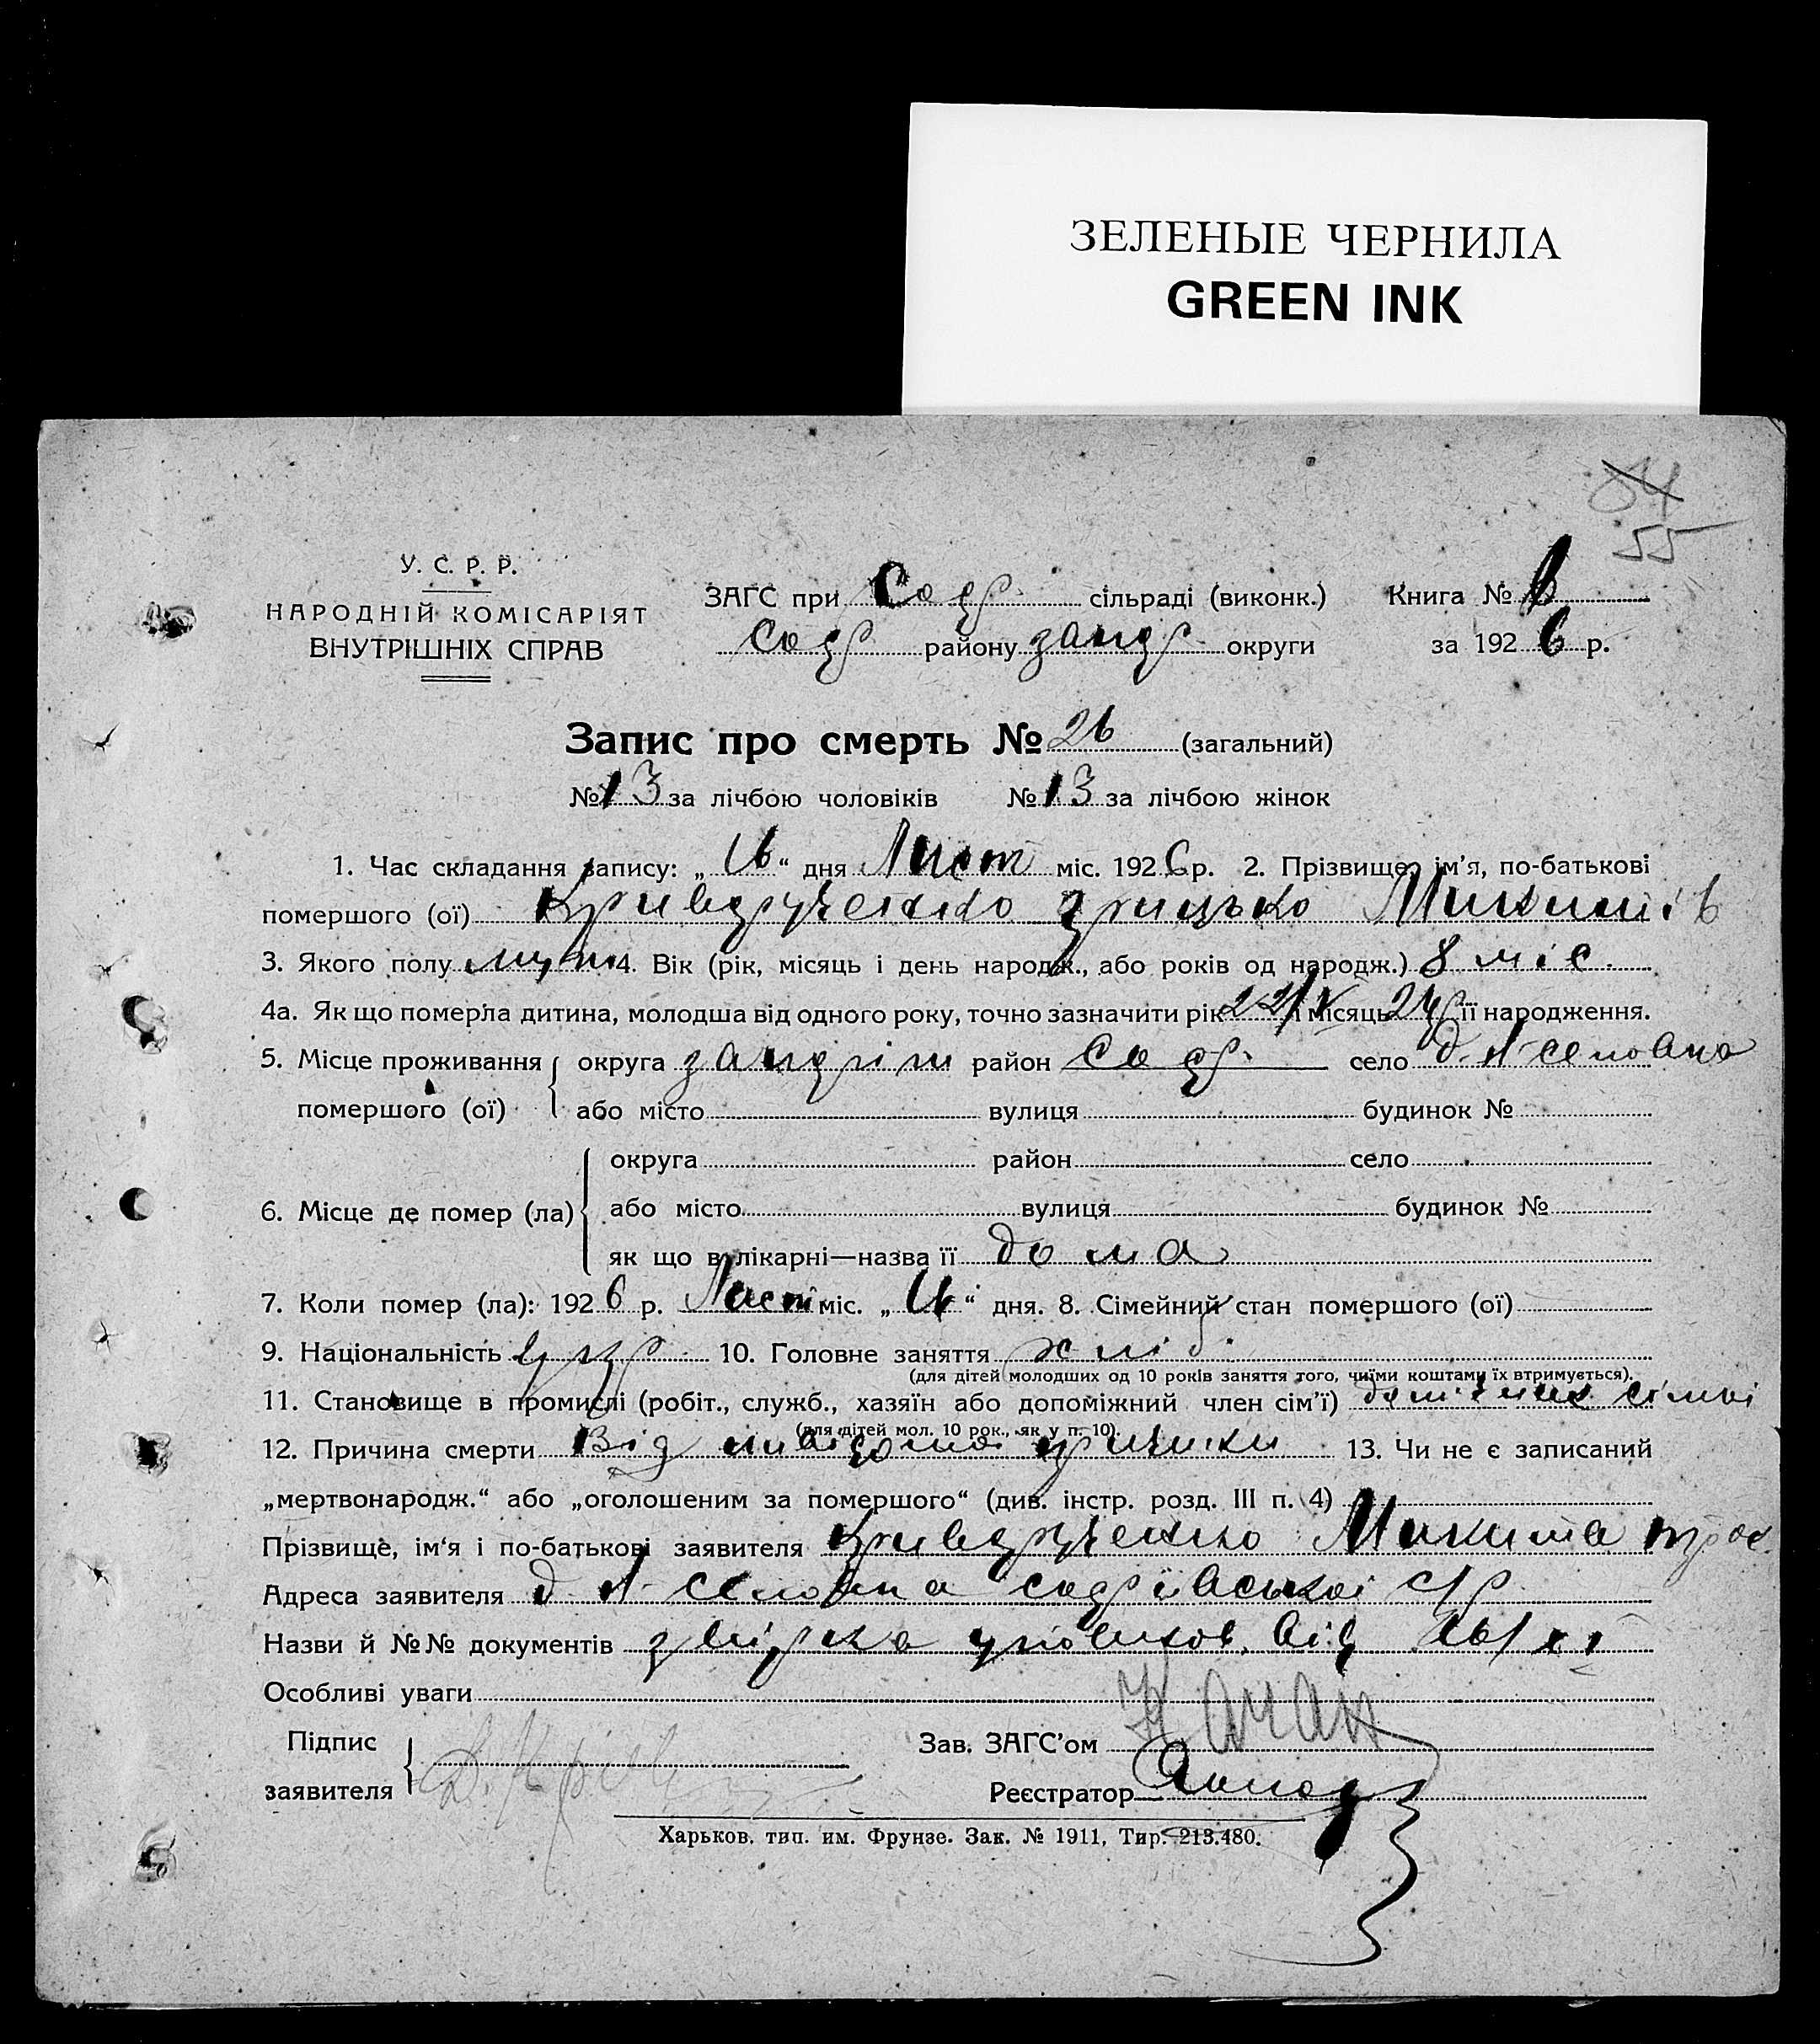 ЗЕЛЕНЫЕ ЧЕРНИЛА
GREEN INK
84
55
У. С. Р. Р.
НАРОДНІЙ КОМІСАРІЯТ
ВНУТРІШНІХ СПРАВ
ЗАГС при сільраді (виконк.)
району округи
Книга №
за 1926 р.
Запис про смерть № 26 (загальний)
№ 13 за лічбою чоловіків № 13 за лічбою жінок
1. Час складання запису: „16“ дня Лист міс. 1926 р. 2. Прізвище, ім’я, по-батькові
помершого (ої) Криворученко Грицько Микит.
3. Якого полу муж 4. Вік (рік, місяць і день народж., або років од народж.) 8 міс.
4а. Як що померла дитина, молодша від одного року, точно зазначити рік і місяць її народження.
5. Місце проживання округа район село
помершого (ої) або місто вулиця будинок №
округа район село
6. Місце де помер (ла) або місто вулиця будинок №
як що в лікарні—назва її дома
7. Коли помер (ла): 1926 р. Лист міс. „“ дня. 8. Сімейний стан помершого (ої)
9. Національність укр 10. Головне заняття хліб
(для дітей молодших од 10 років заняття того, чиїми коштами їх втримується).
11. Становище в промислі (робіт., служб., хазяїн або допоміжний член сім’ї)
(для дітей мол. 10 рок., як у п. 10).
12. Причина смерти Від невідомоі причини 13. Чи не є записаний
„мертвонародж.“ або „оголошеним за помершого“ (див. інстр. розд. III п. 4)
Прізвище, ім‘я і по-батькові заявителя Криворученко Микита
Адреса заявителя с/р
Назви й №№ документів від 16/XI
Особливі уваги
Підпис
заявителя
Зав. ЗАГС’ом Качан
Реєстратор
Харьков. тип. им. Фрунзе. Зак. № 1911, Тир. 213.480.